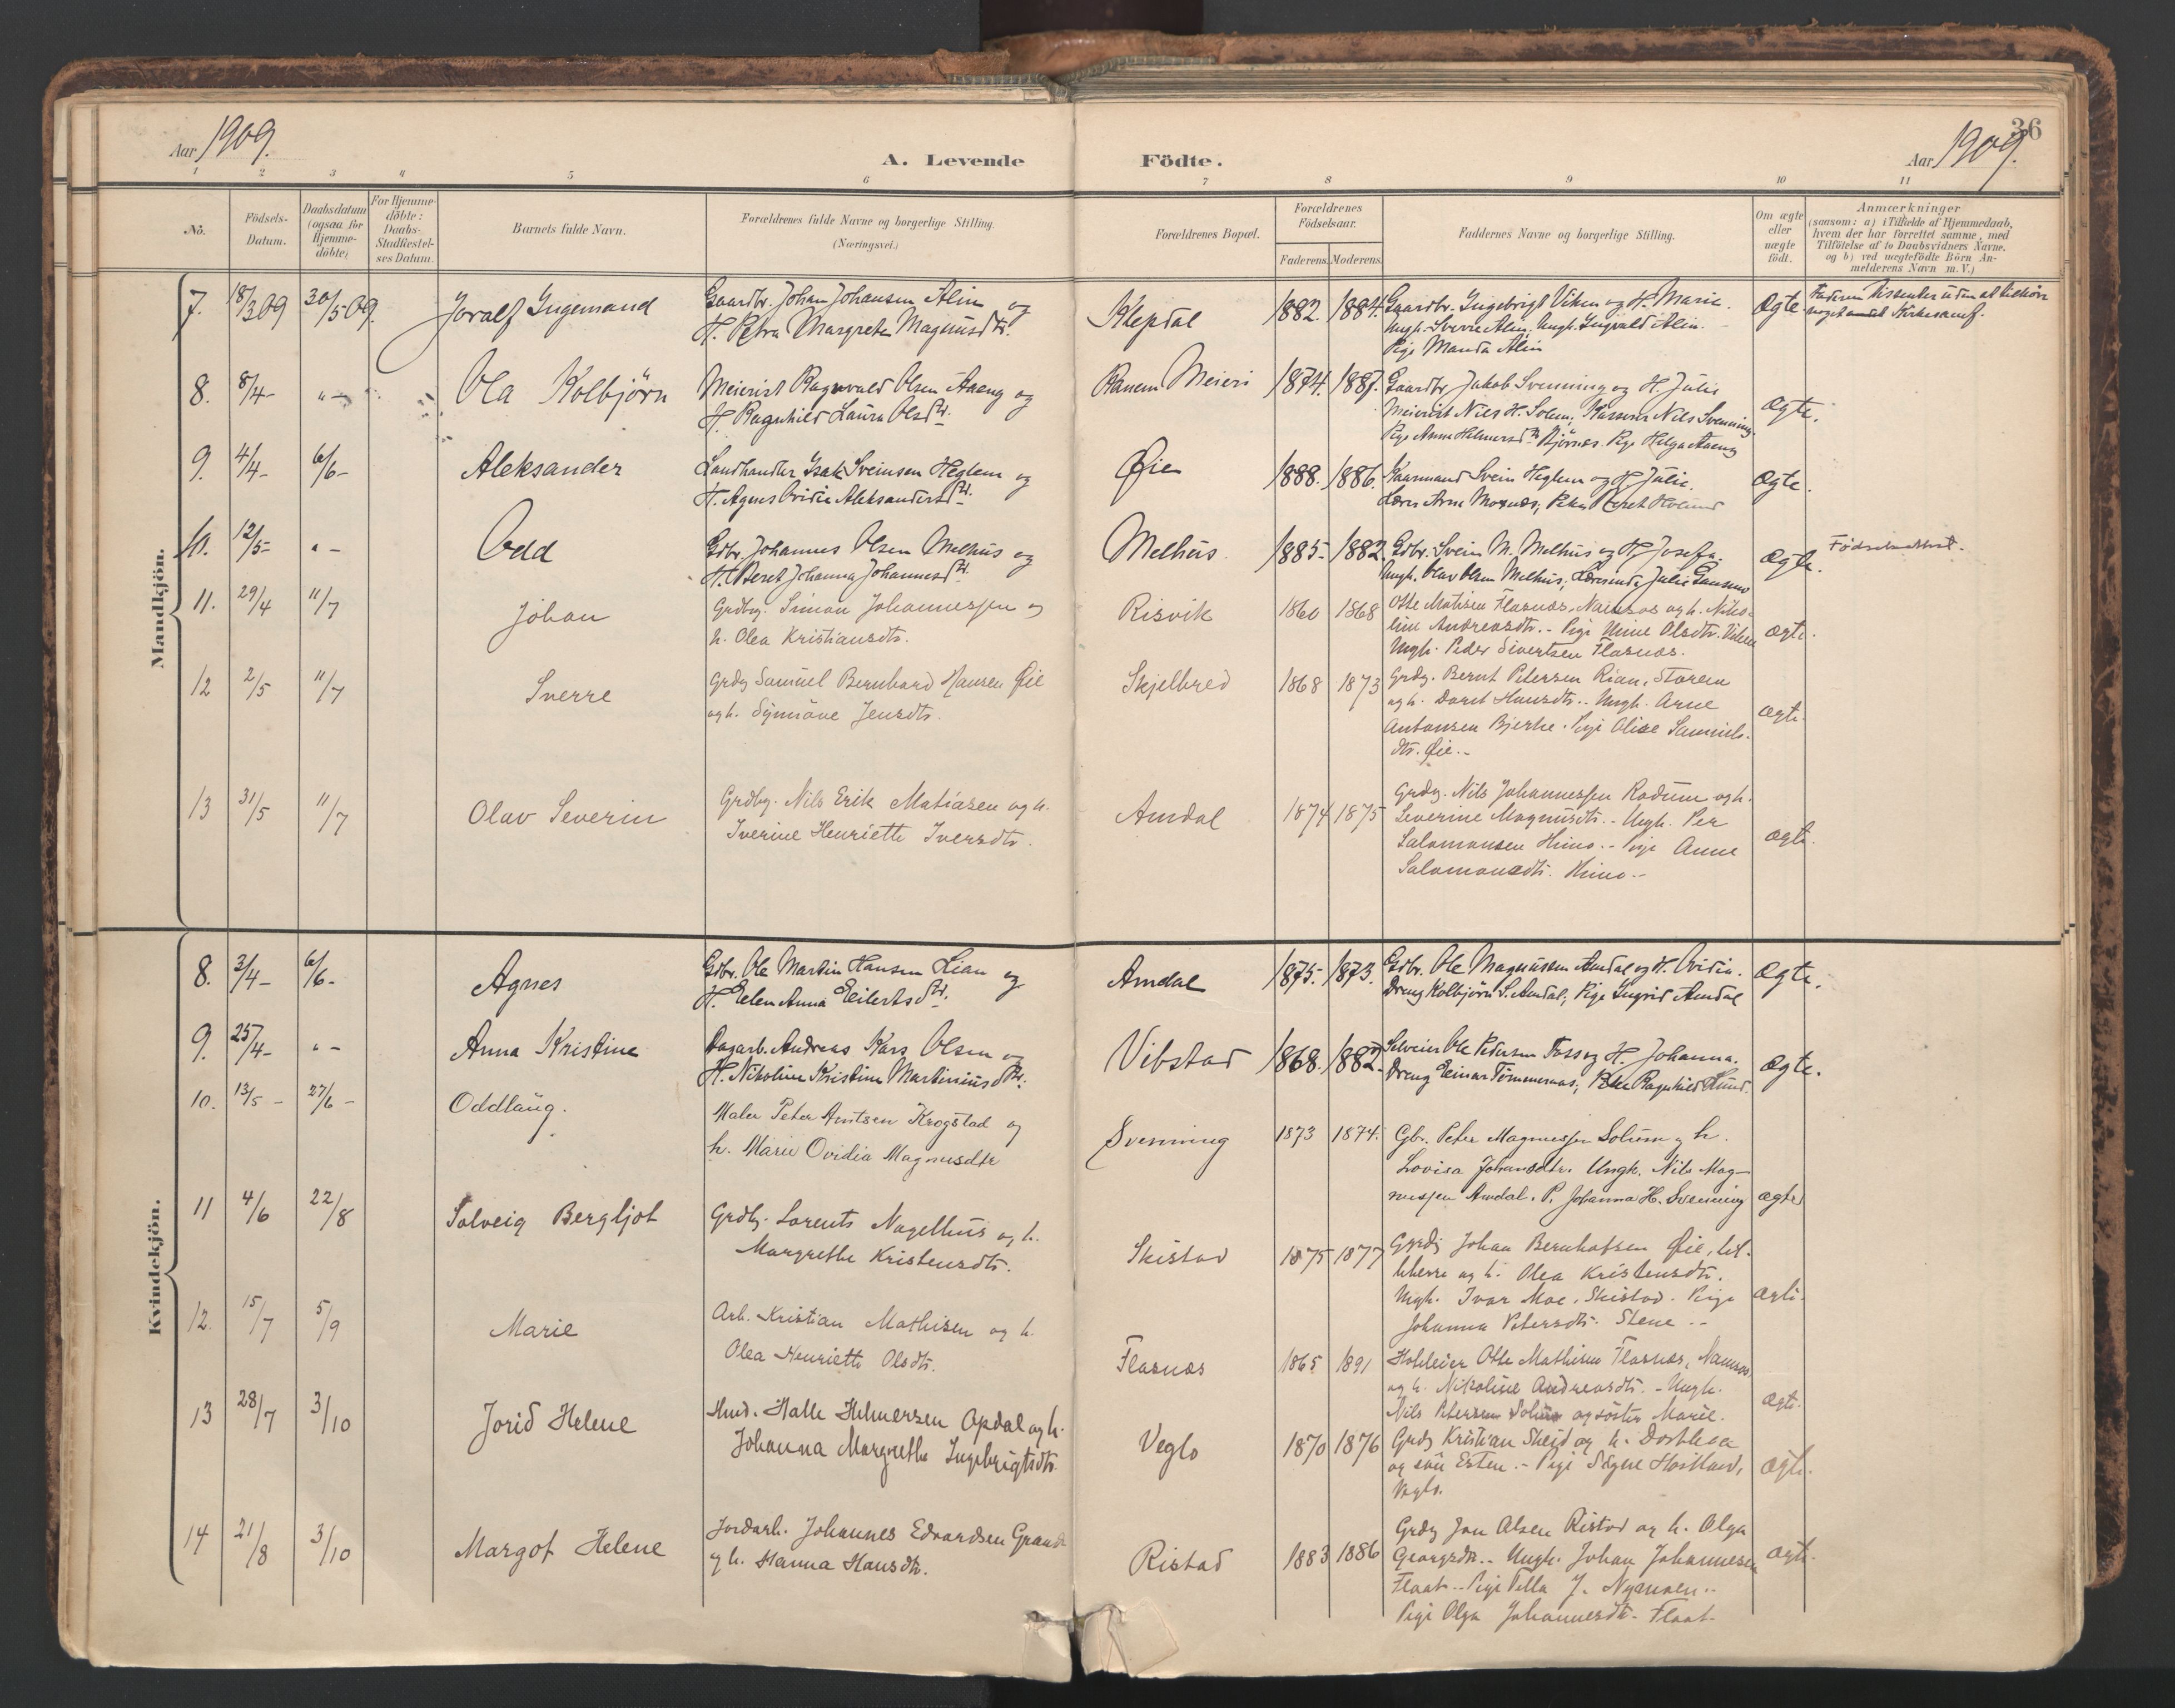 Aar 1909.
A. Levende Födte.
Aar 1909.
36
1 2 3 4 5 6 7 8 9 10 11
No.
Födsels-Datum.
Daabsdatum (ogsaa for Hjemme-döbte)
For Hjemme-döbte: Daabs-Stadfæstel-ses Datum.
Barnets fulde Navn.
Forældrenes fulde Navne og borgerlige Stilling. (Næringsvei.)
Forældrenes Bopæl.
Forældrenes Födselsaar.
Faderens. Moderens.
Faddernes Navne og borgerlige Stilling.
Om ægte eller uægte födt.
Anmærkninger
(saasom: a) i Tilfælde af Hjemmedaab,
hvem der har forrettet samme, med
Tilföielse af to Daabsvidners Navne,
og b) ved uægtefödte Börn An-
melderens Navn m. V.)
Mandkjön.
7. 18/3 09 30/5 09. Joralf Ingemand
Gaardbr. Johan Johansen Alin og
H. Petra Margrete Magnusdtr.
Klepdal 1882. 1884.
Gaardbr. Ingebrigt Viken og H. Marie.
Ungk. Sverre Alin, Ungk. Ingvald Alin.
Pige Manda Alin
Ægte.
Faderen Dissenter uden at tilhöre
noget andet Kirkesamf.
8. 8/4- "- Ola Kolbjörn
Meierist Ragnvald Olsen Aaeng og
H. Ragnhild Laura Olsdtr.
Ranem Meieri 1874. 1887.
Gaardbr Jakob Svenning og H. Julie
Meierist Nils H. Solem, Kasserer Nils Svenning.
Pige Anna Helmersdtr Bjørnes. Pige Helga Aaeng
ægte.
9. 4/4- 6/6- Aleksander
Landhandler Isak Sveinsen Heglem og
H. Agnes Ovidie Aleksandersdtr.
Øie 1888. 1886.
Kaarmand Svein Heglem og H. Julie.
Lærer Arne Moxnes,
Ægte.
10. 12/5- "- Odd
Gdbr. Johannes Olsen Melhus og
H. Beret Johanna Johannesdtr.
Melhus 1885- 1882.
Gdbr. Svein M. Melhus og H. Josefa.
Ungk. Olav Olsen Melhus, Lærerinde Julie
ægte.
Födselsattest.
11. 29/4 11/7 Johan
Grdbg. Simon Johannessen og
h. Olea Kristiansdtr.
Risvik 1860 1868
Otte Matisen Flasnes, Namsos og h. Niko-
line Andreasdtr. - Pige Mine Olsdtr. Viken
Ungk. Peder Sivertsen Flasnes.
ægte.
12 2/5 11/7 Sverre
Grdbg Samuel Bernhard Hansen Øie
og h. Synnöve Jensdtr.
Skjelbred 1868 1873
Grdbg. Bernt Petersen Rian, Storem
og h. Doret Hansdtr. - Ungk. Arne
Antonsen Bjerke. Pige Olise Samuels-
dtr. Øie.-
ægte.
13 31/5 11/7 Olav Severin
Grdbg. Nils Erik Matiasen og h.
Iverine Henriette Iversdtr.
Amdal 1874 1875
Grdbg. Nils Johannessen Rodum og h.
Severine Magnusdtr. - Ungk. Per
Salomonsen Himo. - Pige Anne
Salomonsdtr. Himo.-
ægte.
Kvindekjön.
8. 3/4- 6/6- Agnes
Gdbr. Ole Martin Hansen Lian og
H. Elen Anna Eilertsdtr.
Amdal 1875- 1873.
Gdbr. Ole Magnussen Amdal og H. Ovidia.
Dreng Kolbjörn S. Amdal, Pige Ingrid Amdal
ægte.
9. 25/4- "- Anna Kristine
Dagarb. Andreas Kars Olsen og
H. Nikoline Kristine Martiniusdtr.
Vibstad 1868. 1882.
Selveier Ole Pedersen Foss og H. Johanna.
Dreng Einar Tömmernes, Pike Ragnhild Lund.
ægte.
10. 13/5- 27/6- Oddlaug.
Maler Peter Arntsen Krogstad og
h. Marie Ovidia Magnusdtr
Svenning 1873 1874.
Gbr. Peter Magnussen Solum og h.
Lovisa Johansdtr. Ungk. Nils Mag-
nussen Amdal. P. Johanna H. Svenning
ægte
11 4/6 22/8 Solveig Bergljot
Grdbg. Lorents Nagelhus og h.
Margrethe Kristensdtr.
Skistad 1875 1877
Grdbg Johan Bernhofsen Øie,
og h. Olea Kristensdtr.
Ungk. Ivar Moe, Skistad. Pige
Johanna Petersdtr. Stene.-
ægte.
12. 15/7 5/9 Marie
Arb. Kristian Mathisen og h.
Olea Henriette Olsdtr.
Flasnes 1865 1891
Otte Mathisen Flasnes, Namsos
og h. Nikoline Andreasdtr. - Ungk.
Nils Petersen Solum og söster Marie.
ægte.
13 28/7 3/10 Jorid Helene
Hmd. Halle Helmersen Opdal og h.
Johanna Margrethe Ingebrigtsdtr.
Veglo 1870 1876
Grdbg Kristian Skejd og h. Dorthea
og sön Esten. - Pige Signe Havtland,
Veglo.
ægte.
14 21/8 3/10 Margot Helene
Jordarb. Johannes Edvardsen Grande
og h. Hanna Hansdtr.
Ristad 1883 1886
Grdbg Jon Olsen Ristad og h. Olga
Georgsdtr. - Ungk. Johan Johannesen
Flaat. - Pige Pella J. Nymoen. -
Pige Olga Johannesdtr. Flaat.
ægte.